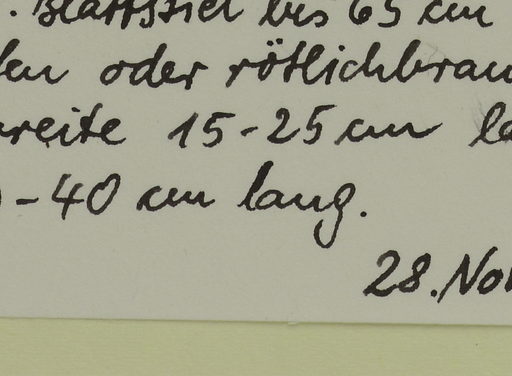 . Blattstiel bis 65 cm
oder rötlichbrau
breite 15-25 cm la
-40 cm lang.
28. Nov